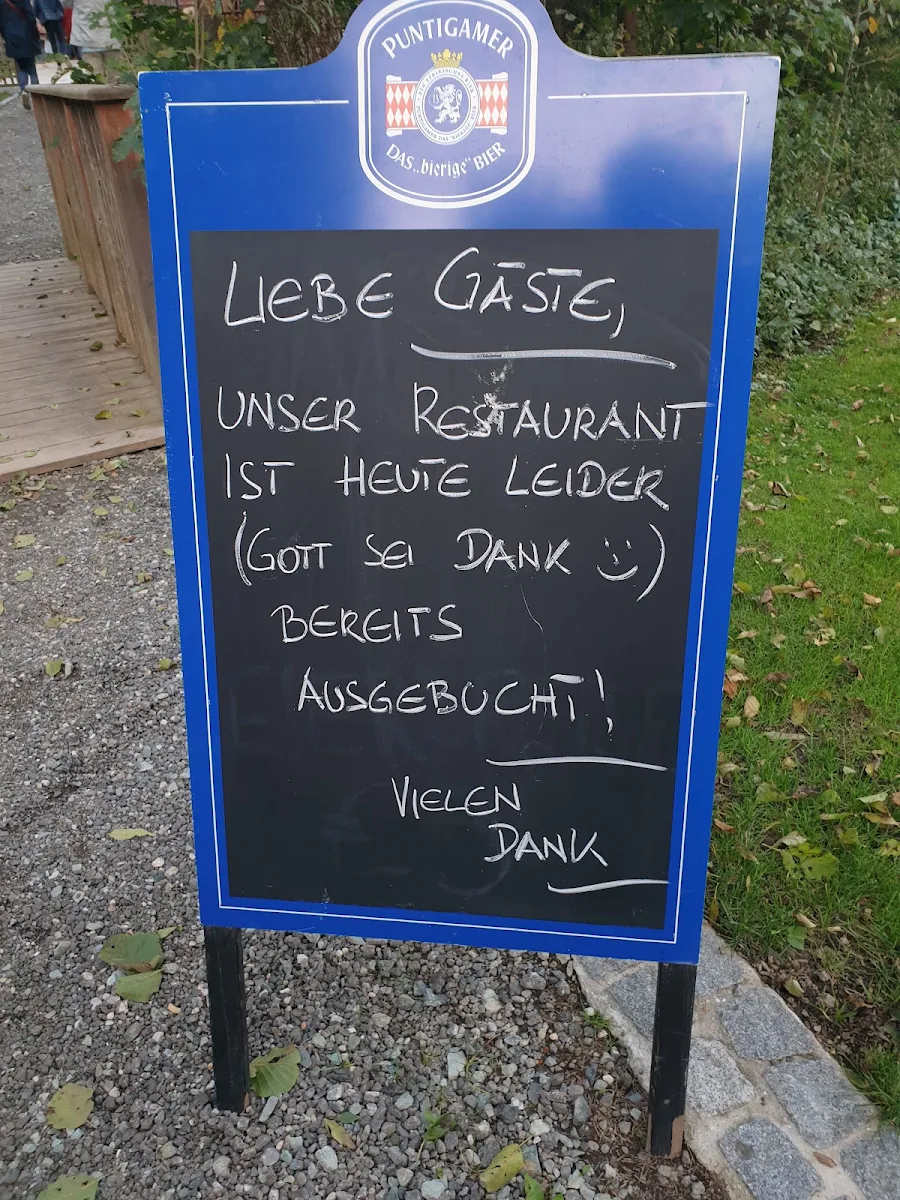 PUNTIGAMER
DAS „bierige" BIER
LIEBE GÄSTE,
UNSER RESTAURANT
IST HEUTE LEIDER
(GOTT SEI DANK :))
BEREITS
AUSGEBUCHT!
VIELEN
DANK